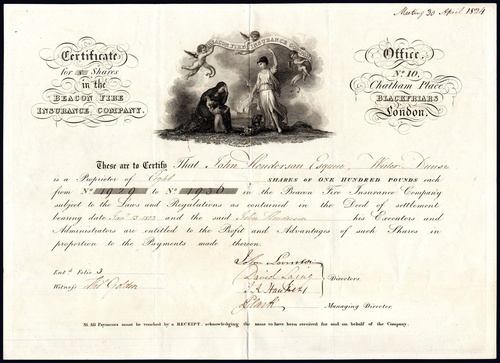 Meeting 30 April 1824
Certificate
for Shares
in the
BEACON FIRE
INSURANCE COMPANY.
BEACON FIRE INSURANCE
Office.
No. 10,
Chatham Place
BLACKFRIARS
London.
These are to Certify That John Henderson Esquire
is a Proprietor of Eight SHARES OF ONE HUNDRED POUNDS each
from No 1929 to No 1936 in the Beacon Fire Insurance Company
subject to the Laws and Regulations as contained in the Deed of settlement
bearing date and the said John Henderson his Executors and
Administrators are entitled to the Profit and Advantages of such Shares in
proportion to the Payments made thereon.
Entd Folio 3
Witness Golden
David
Directors.
Managing Director.
All Payments must be vouched by a RECEIPT, acknowledging the same to have been received for and on behalf of the Company.